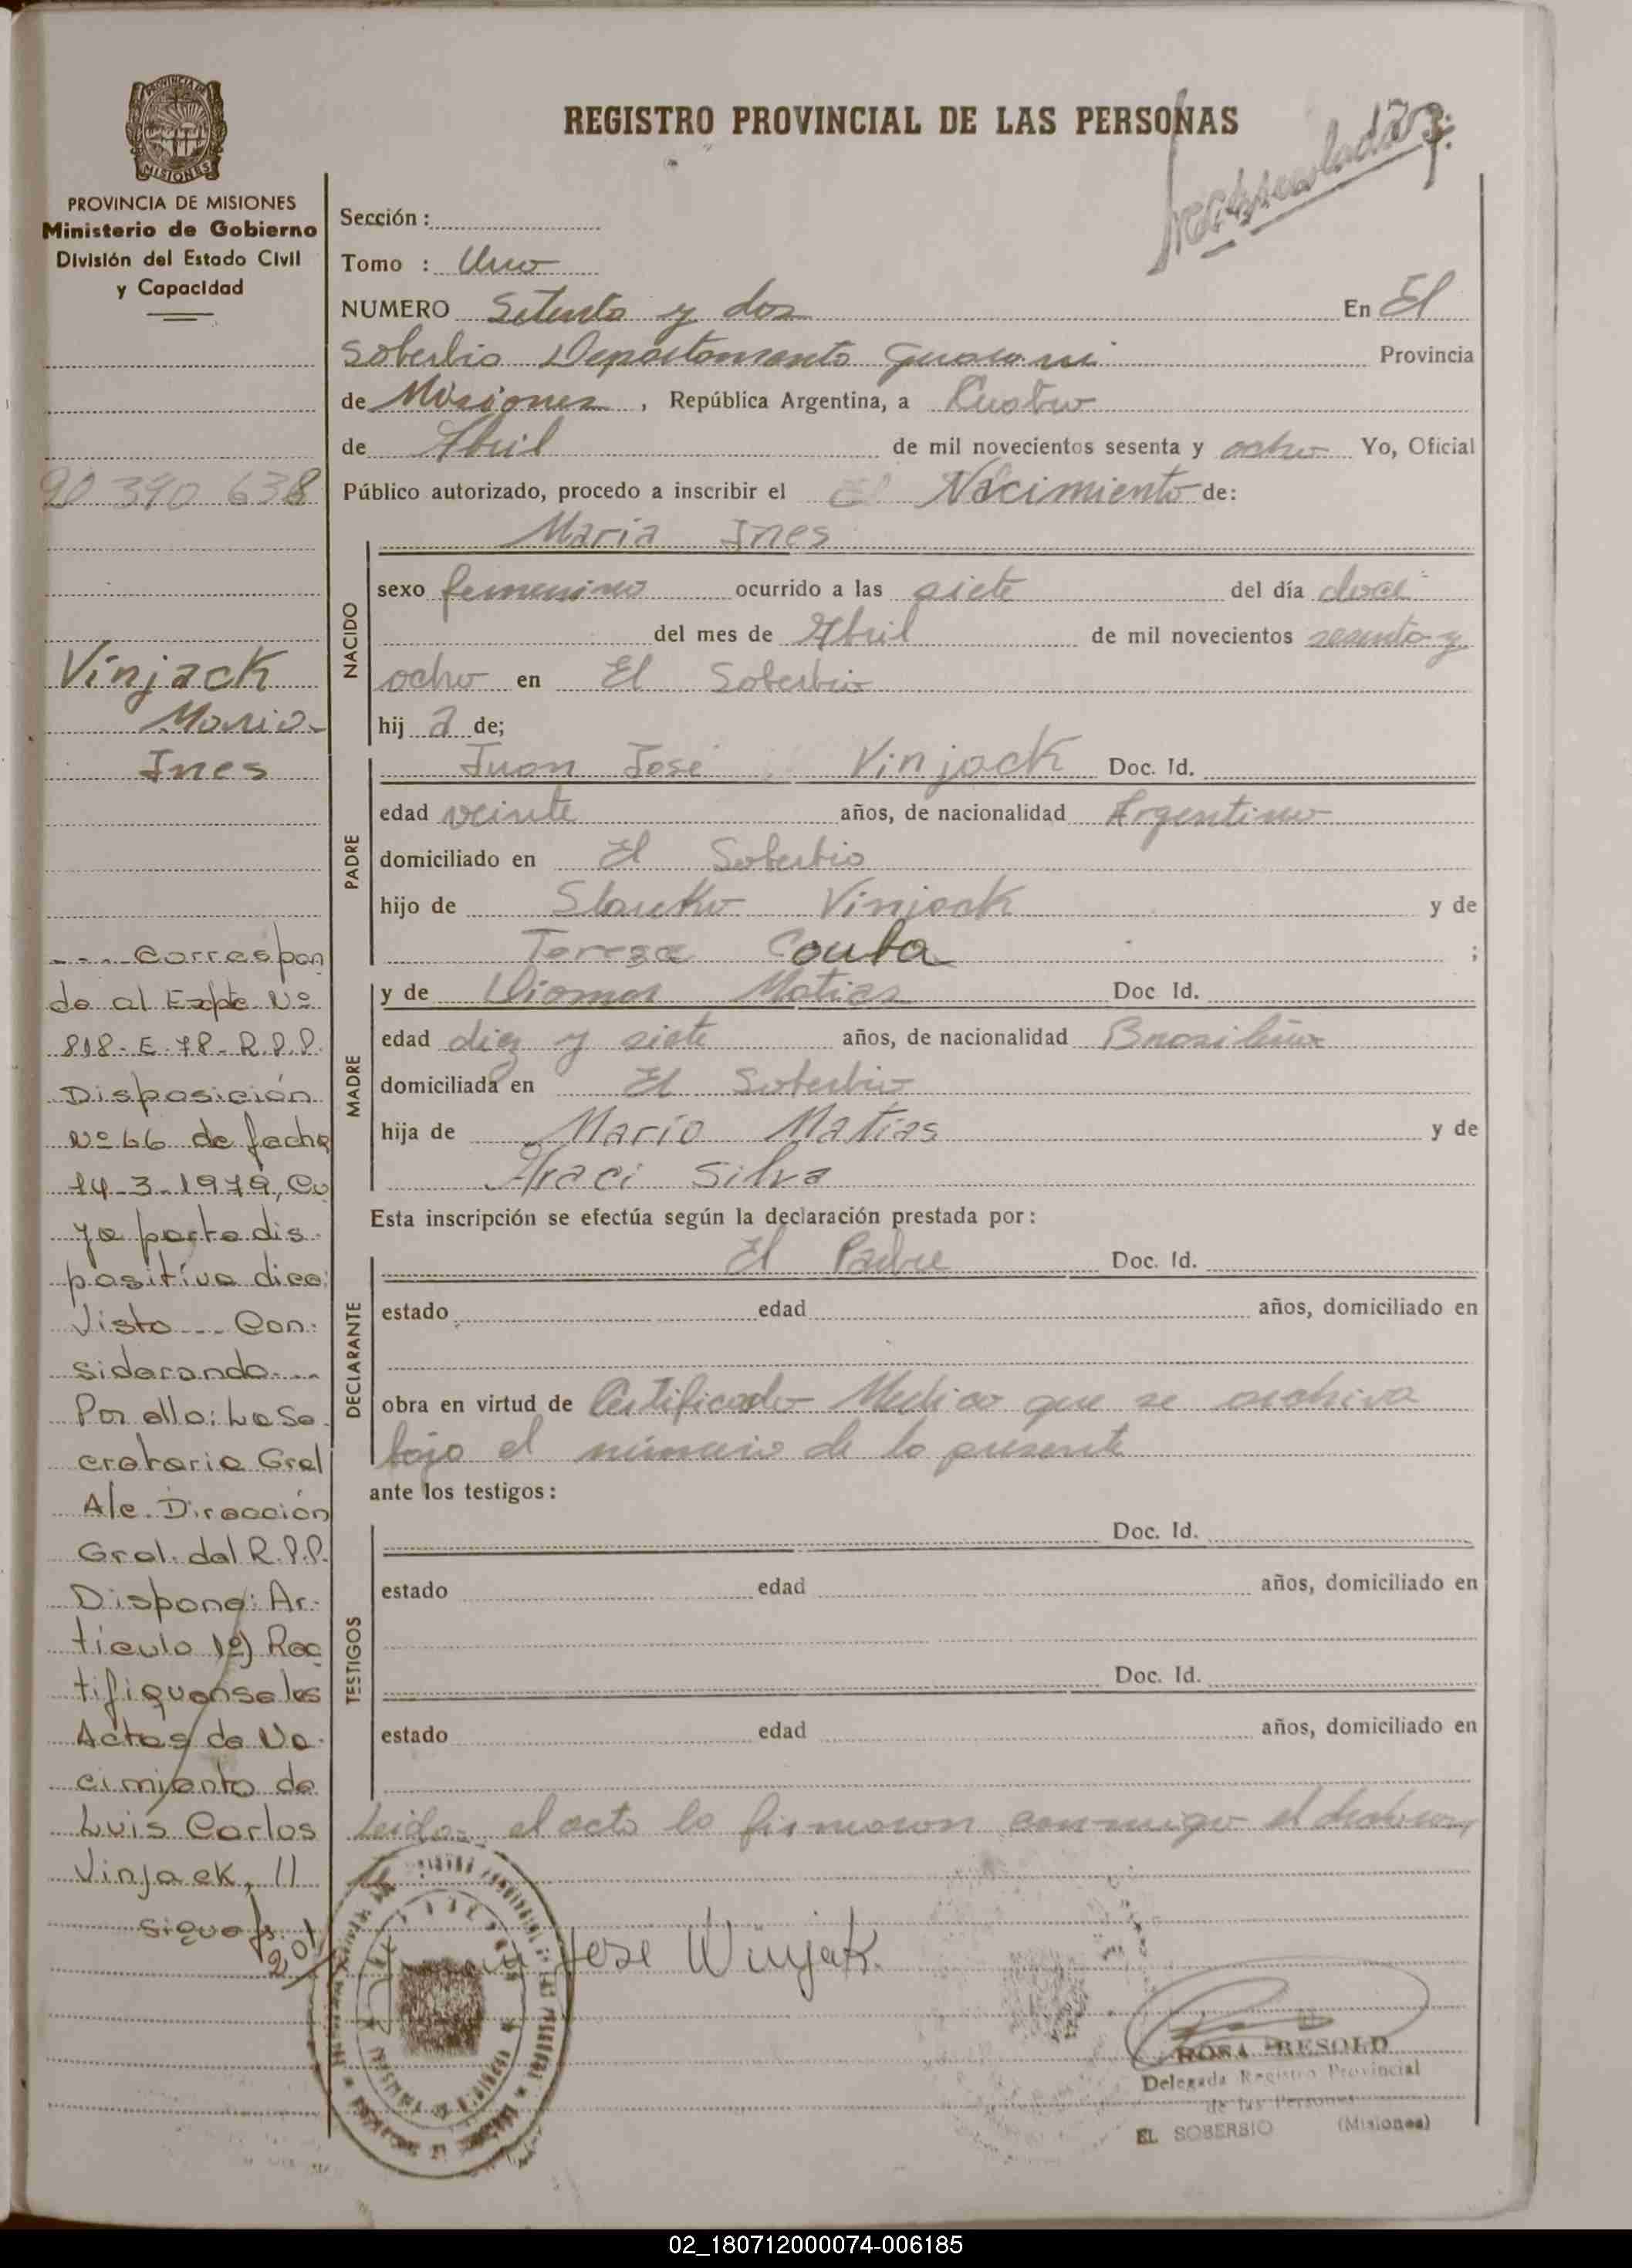 REGISTRO PROVINCIAL DE LAS PERSONAS
MISIONES
PROVINCIA DE MISIONES
Ministerio de Gobierno
División del Estado Civil
y Capacidad
90 390 638
Vinjack
Maria
Ines
---- Correspon
de al Expte Nº
818-E-78-R.P.P.
Disposición
Nº 66 de fecha
14-3-1979, Cu
ya parte dis
positiva dice:
Visto --- Con-
siderando ---
Por ello: La Se
cretaria Gral
A/c. Dirección
Gral. del R.P.P.
Dispone: Ar-
tículo 1º) Rec
tifiquense las
Actas de Na-
cimiento de
Luis Carlos
Vinjack, //
sigue fs.
201
Sección :
Tomo : Uno
NUMERO Setenta y dos En El
Soberbio Departamento Guarani Provincia
de Misiones , República Argentina, a Cuatro
de Abril de mil novecientos sesenta y ocho Yo, Oficial
Público autorizado, procedo a inscribir el El Nacimiento de:
Maria Ines
NACIDO
sexo femenino ocurrido a las siete del día doce
del mes de Abril de mil novecientos sesenta y
ocho en El Soberbio
hij a de;
PADRE
Juan José Vinjack Doc. Id.
edad veinte años, de nacionalidad Argentino
domiciliado en El Soberbio
hijo de Slauko Vinjack y de
Tereza Couta ;
MADRE
y de Diomar Matias Doc Id.
edad diez y siete años, de nacionalidad Brasileña
domiciliada en El Soberbio
hija de Mario Matias y de
Araci Silva
Esta inscripción se efectúa según la declaración prestada por :
DECLARANTE
El Padre Doc. Id.
estado edad años, domiciliado en
obra en virtud de Certificado Medico que se archiva
bajo el número de la presente
ante los testigos :
TESTIGOS
Doc. Id.
estado edad años, domiciliado en
Doc. Id.
estado edad años, domiciliado en
Leida el acta la firmaron conmigo el
Jose Winjak.
ROSA RESOLD
Delegada Registro Provincial
de las Personas
EL SOBERBIO (Misiones)
02_180712000074-006185